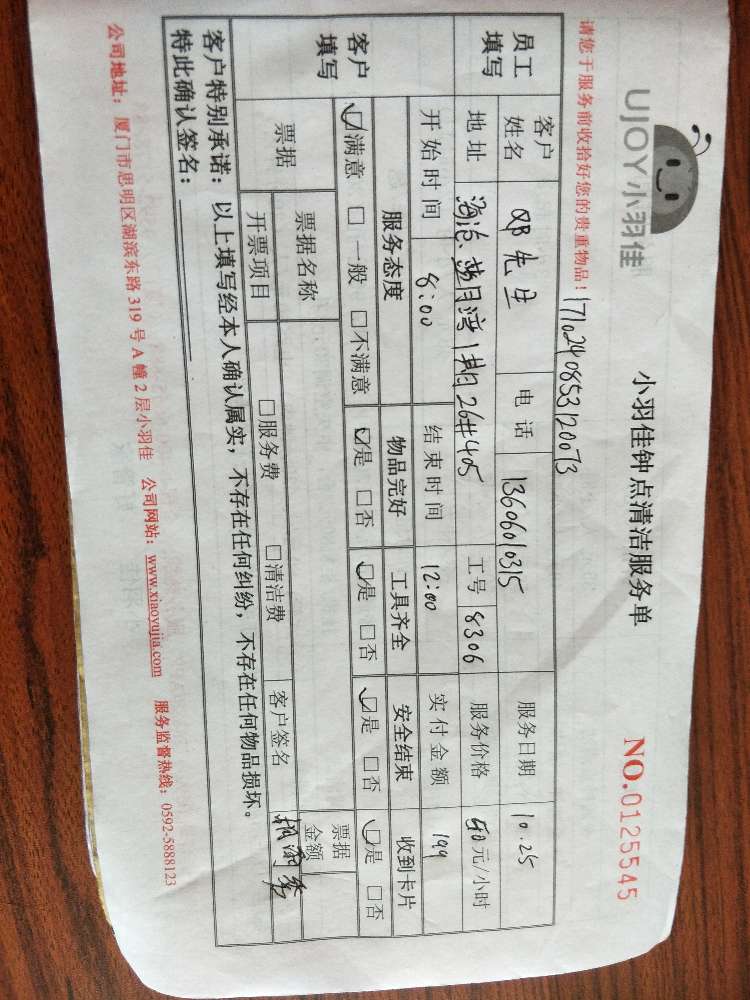 UJOY小羽佳
小羽佳钟点清洁服务单
NO.0125545
请您于服务前收拾好您的贵重物品！
17102408853120073
员工填写
客户姓名 先生 电话 13606010315 服务日期 10.25
地址 海沧 1期26#405 工号 8306 服务价格 40元/小时
开始时间 8:00 结束时间 12:00 实付金额 199
客户填写
服务态度 物品完好 工具齐全 安全结束 收到卡片
☑满意 □一般 □不满意 ☑是 □否 ☑是 □否 ☑是 □否 ☑是 □否
票据 票据名称 票据金额
开票项目 □服务费 □清洁费 客户签名
客户特别承诺：以上填写经本人确认属实，不存在任何纠纷，不存在任何物品损坏。
特此确认签名：
公司地址：厦门市思明区湖滨东路 319 号 A 幢 2 层小羽佳 公司网站：www.xiaoyujia.com 服务监督热线：0592-5888123